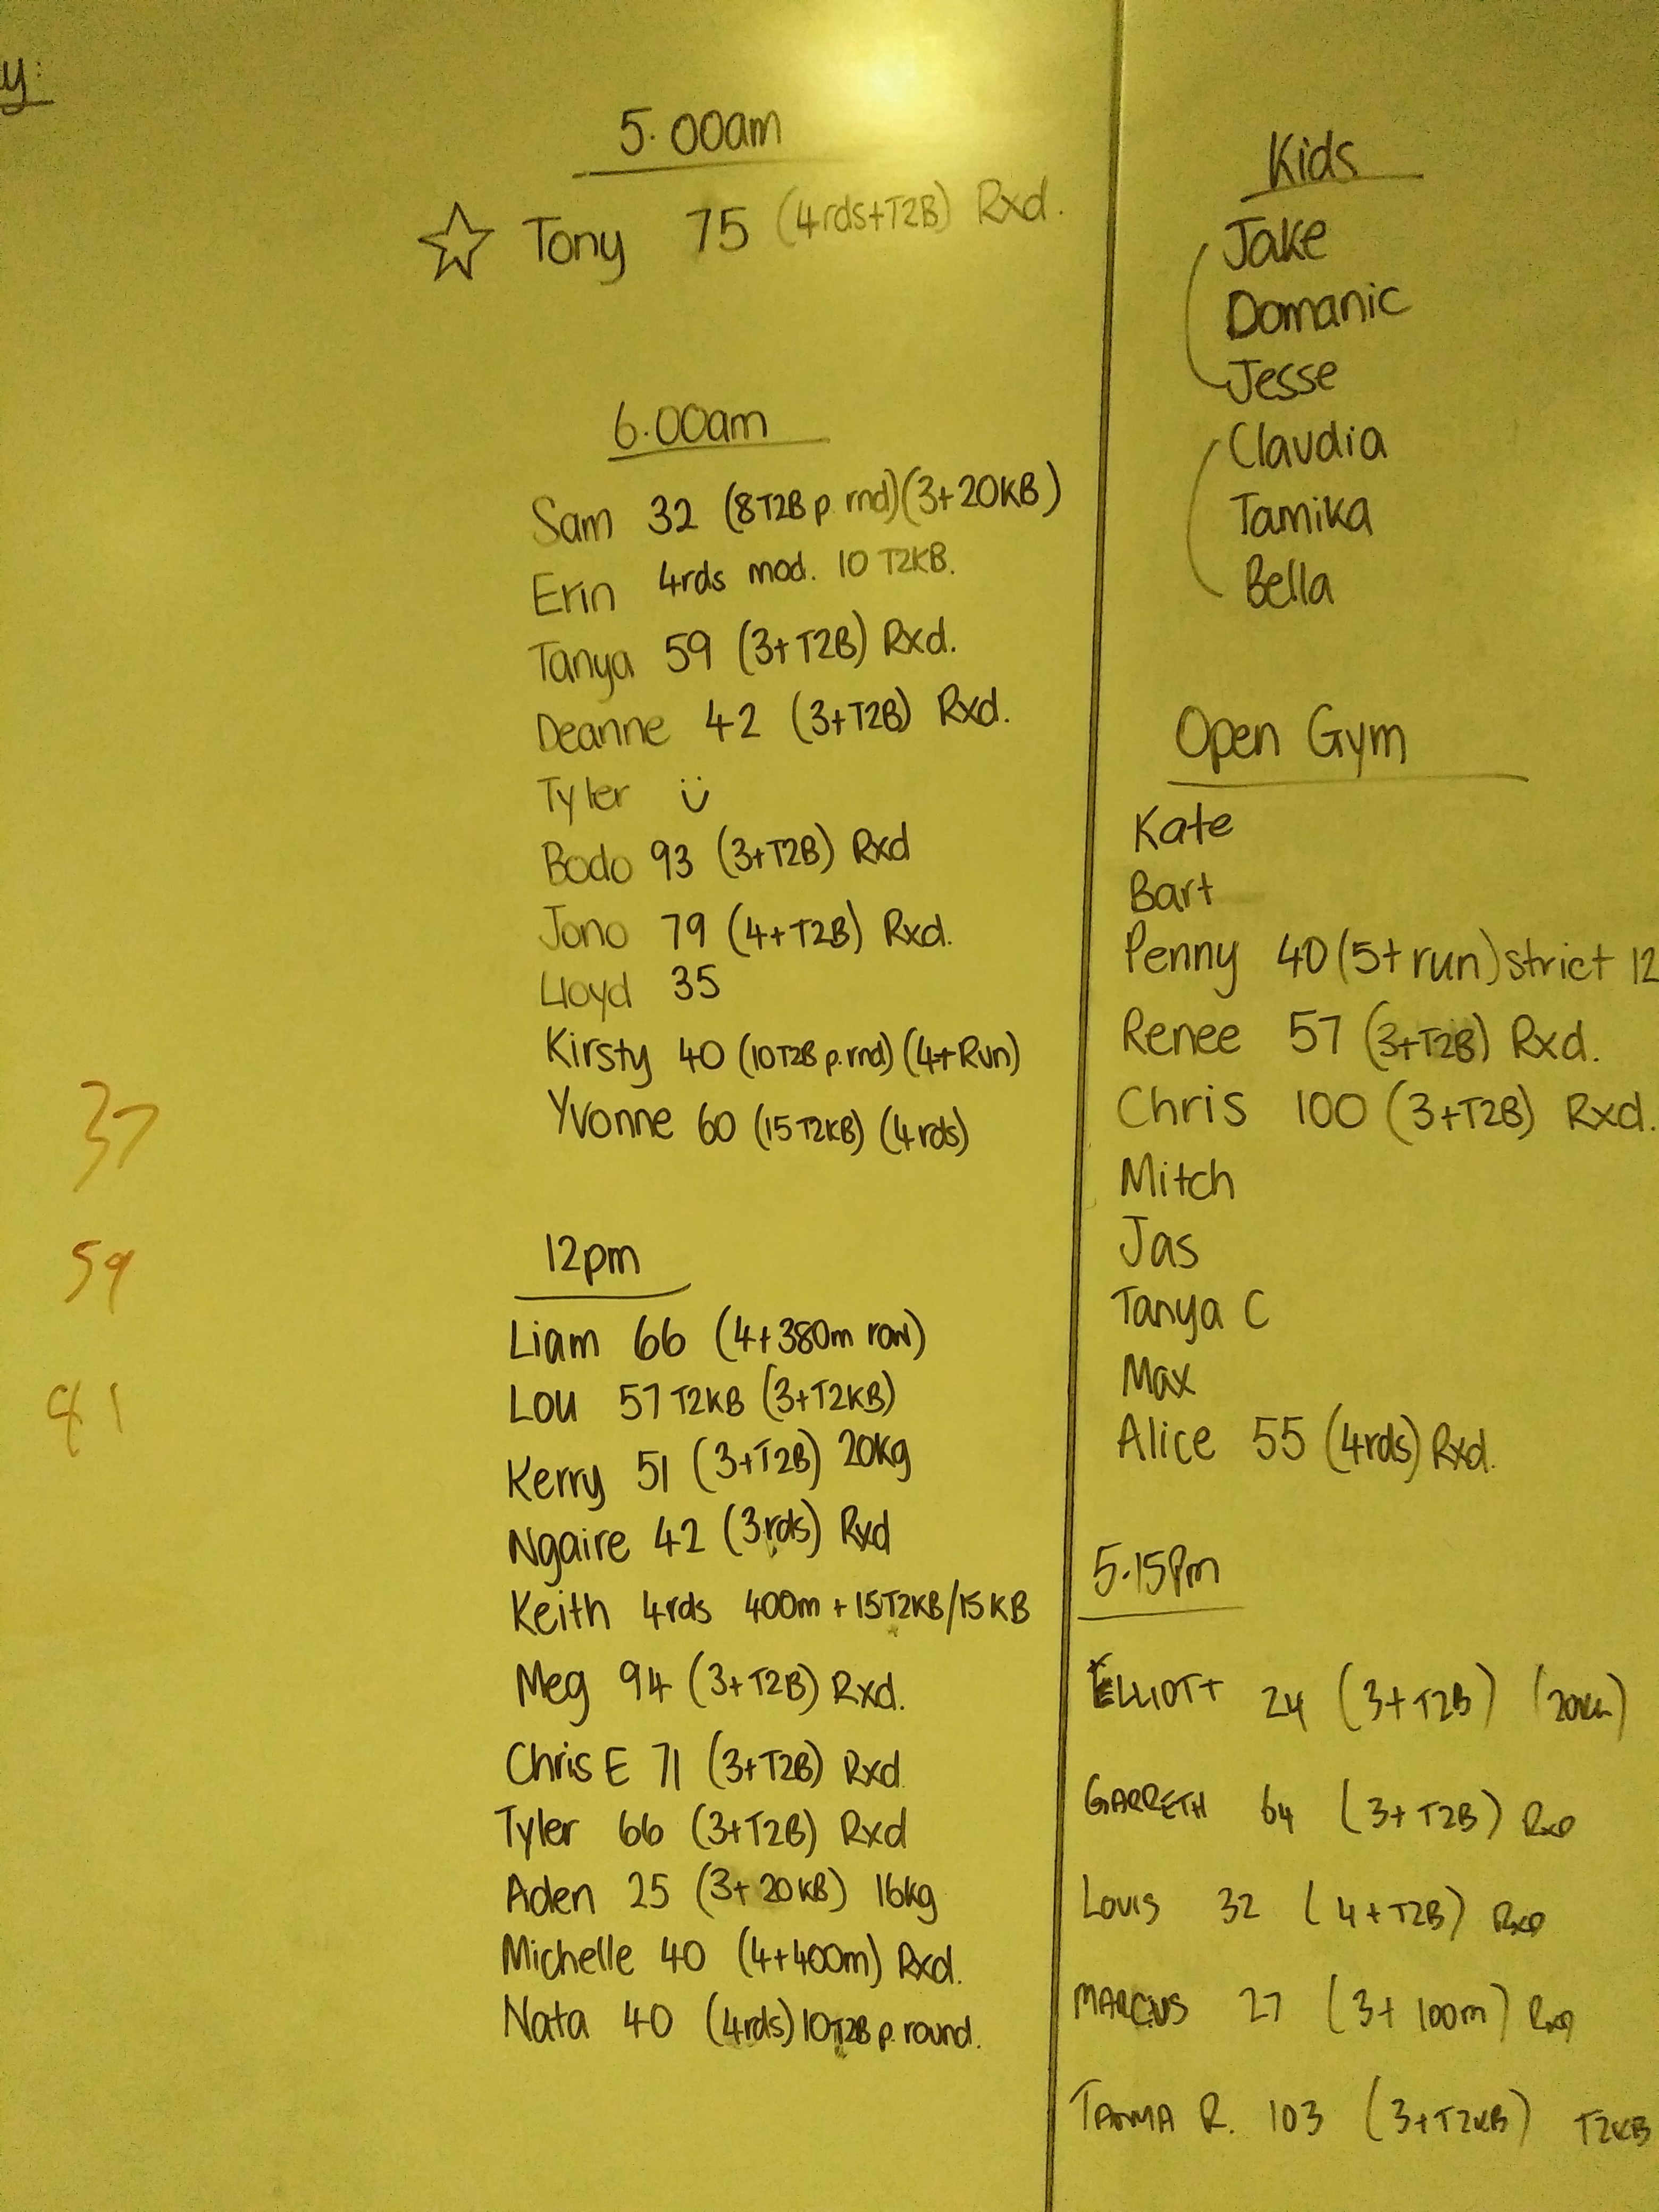 y:
5.00am
☆ Tony 75 (4rds+T2B) Rxd.
6.00am
Sam 32 (8T2B p. rnd)(3+20KB)
Erin 4rds mod. 10 T2KB.
Tanya 59 (3+T2B) Rxd.
Deanne 42 (3+T2B) Rxd.
Tyler ü
Bodo 93 (3+T2B) Rxd
Jono 79 (4+T2B) Rxd.
Lloyd 35
Kirsty 40 (10T2B p.rnd) (4+Run)
Yvonne 60 (15T2KB) (4rds)
37
59
12pm
Liam 66 (4+380m row)
Lou 57 T2KB (3+T2KB)
Kerry 51 (3+T2B) 20kg
Ngaire 42 (3rds) Rxd
Keith 4rds 400m + 15T2KB/15KB
Meg 94 (3+T2B) Rxd.
Chris E 71 (3+T2B) Rxd
Tyler 66 (3+T2B) Rxd
Aden 25 (3+20KB) 16kg
Michelle 40 (4+400m) Rxd.
Nata 40 (4rds) 10T2B p. round.
Kids
Jake
Domanic
Jesse
Claudia
Tamika
Bella
Open Gym
Kate
Bart
Penny 40 (5+run) strict 12
Renee 57 (3+T2B) Rxd.
Chris 100 (3+T2B) Rxd.
Mitch
Jas
Tanya C
Max
Alice 55 (4rds) Rxd.
5.15Pm
ELLIOTT 24 (3+T2B)
GARRETH 64 (3+T2B) RxD
LOUIS 32 (4+T2B) RxD
MARCUS 27 (3+100m) RxD
R. 103 (3+T2KB) T2KB